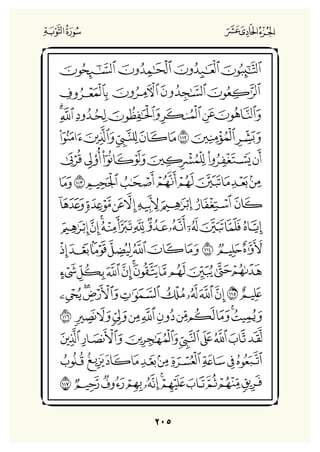 الجُزْءُ الحَادِي عَشَرَ
سُورَةُ التَّوْبَةِ
ٱلتَّٰٓئِبُونَ ٱلْعَٰبِدُونَ ٱلْحَٰمِدُونَ ٱلسَّٰٓئِحُونَ
ٱلرَّٰكِعُونَ ٱلسَّٰجِدُونَ ٱلْءَامِرُونَ بِٱلْمَعْرُوفِ
وَٱلنَّاهُونَ عَنِ ٱلْمُنكَرِ وَٱلْحَٰفِظُونَ لِحُدُودِ ٱللَّهِۗ
وَبَشِّرِ ٱلْمُؤْمِنِينَ ١١٢ مَا كَانَ لِلنَّبِيِّ وَٱلَّذِينَ ءَامَنُوٓا۟
أَن يَسْتَغْفِرُوا۟ لِلْمُشْرِكِينَ وَلَوْ كَانُوٓا۟ أُو۟لِى قُرْبَىٰ
مِنۢ بَعْدِ مَا تَبَيَّنَ لَهُمْ أَنَّهُمْ أَصْحَٰبُ ٱلْجَحِيمِ ١١٣ وَمَا
كَانَ ٱسْتِغْفَارُ إِبْرَٰهِيمَ لِأَبِيهِ إِلَّا عَن مَّوْعِدَةٍ وَعَدَهَآ
إِيَّاهُ فَلَمَّا تَبَيَّنَ لَهُۥٓ أَنَّهُۥ عَدُوٌّ لِّلَّهِ تَبَرَّأَ مِنْهُۚ إِنَّ إِبْرَٰهِيمَ
لَأَوَّٰهٌ حَلِيمٌ ١١٤ وَمَا كَانَ ٱللَّهُ لِيُضِلَّ قَوْمًۢا بَعْدَ إِذْ
هَدَىٰهُمْ حَتَّىٰ يُبَيِّنَ لَهُم مَّا يَتَّقُونَۚ إِنَّ ٱللَّهَ بِكُلِّ شَىْءٍ
عَلِيمٌ ١١٥ إِنَّ ٱللَّهَ لَهُۥ مُلْكُ ٱلسَّمَٰوَٰتِ وَٱلْأَرْضِۖ يُحْىِۦ
وَيُمِيتُۚ وَمَا لَكُم مِّن دُونِ ٱللَّهِ مِن وَلِىٍّ وَلَا نَصِيرٍ ١١٦
لَّقَد تَّابَ ٱللَّهُ عَلَى ٱلنَّبِىِّ وَٱلْمُهَٰجِرِينَ وَٱلْأَنصَارِ ٱلَّذِينَ
ٱتَّبَعُوهُ فِى سَاعَةِ ٱلْعُسْرَةِ مِنۢ بَعْدِ مَا كَادَ يَزِيغُ قُلُوبُ
فَرِيقٍ مِّنْهُمْ ثُمَّ تَابَ عَلَيْهِمْۚ إِنَّهُۥ بِهِمْ رَءُوفٌ رَّحِيمٌ ١١٧
٢٠٥